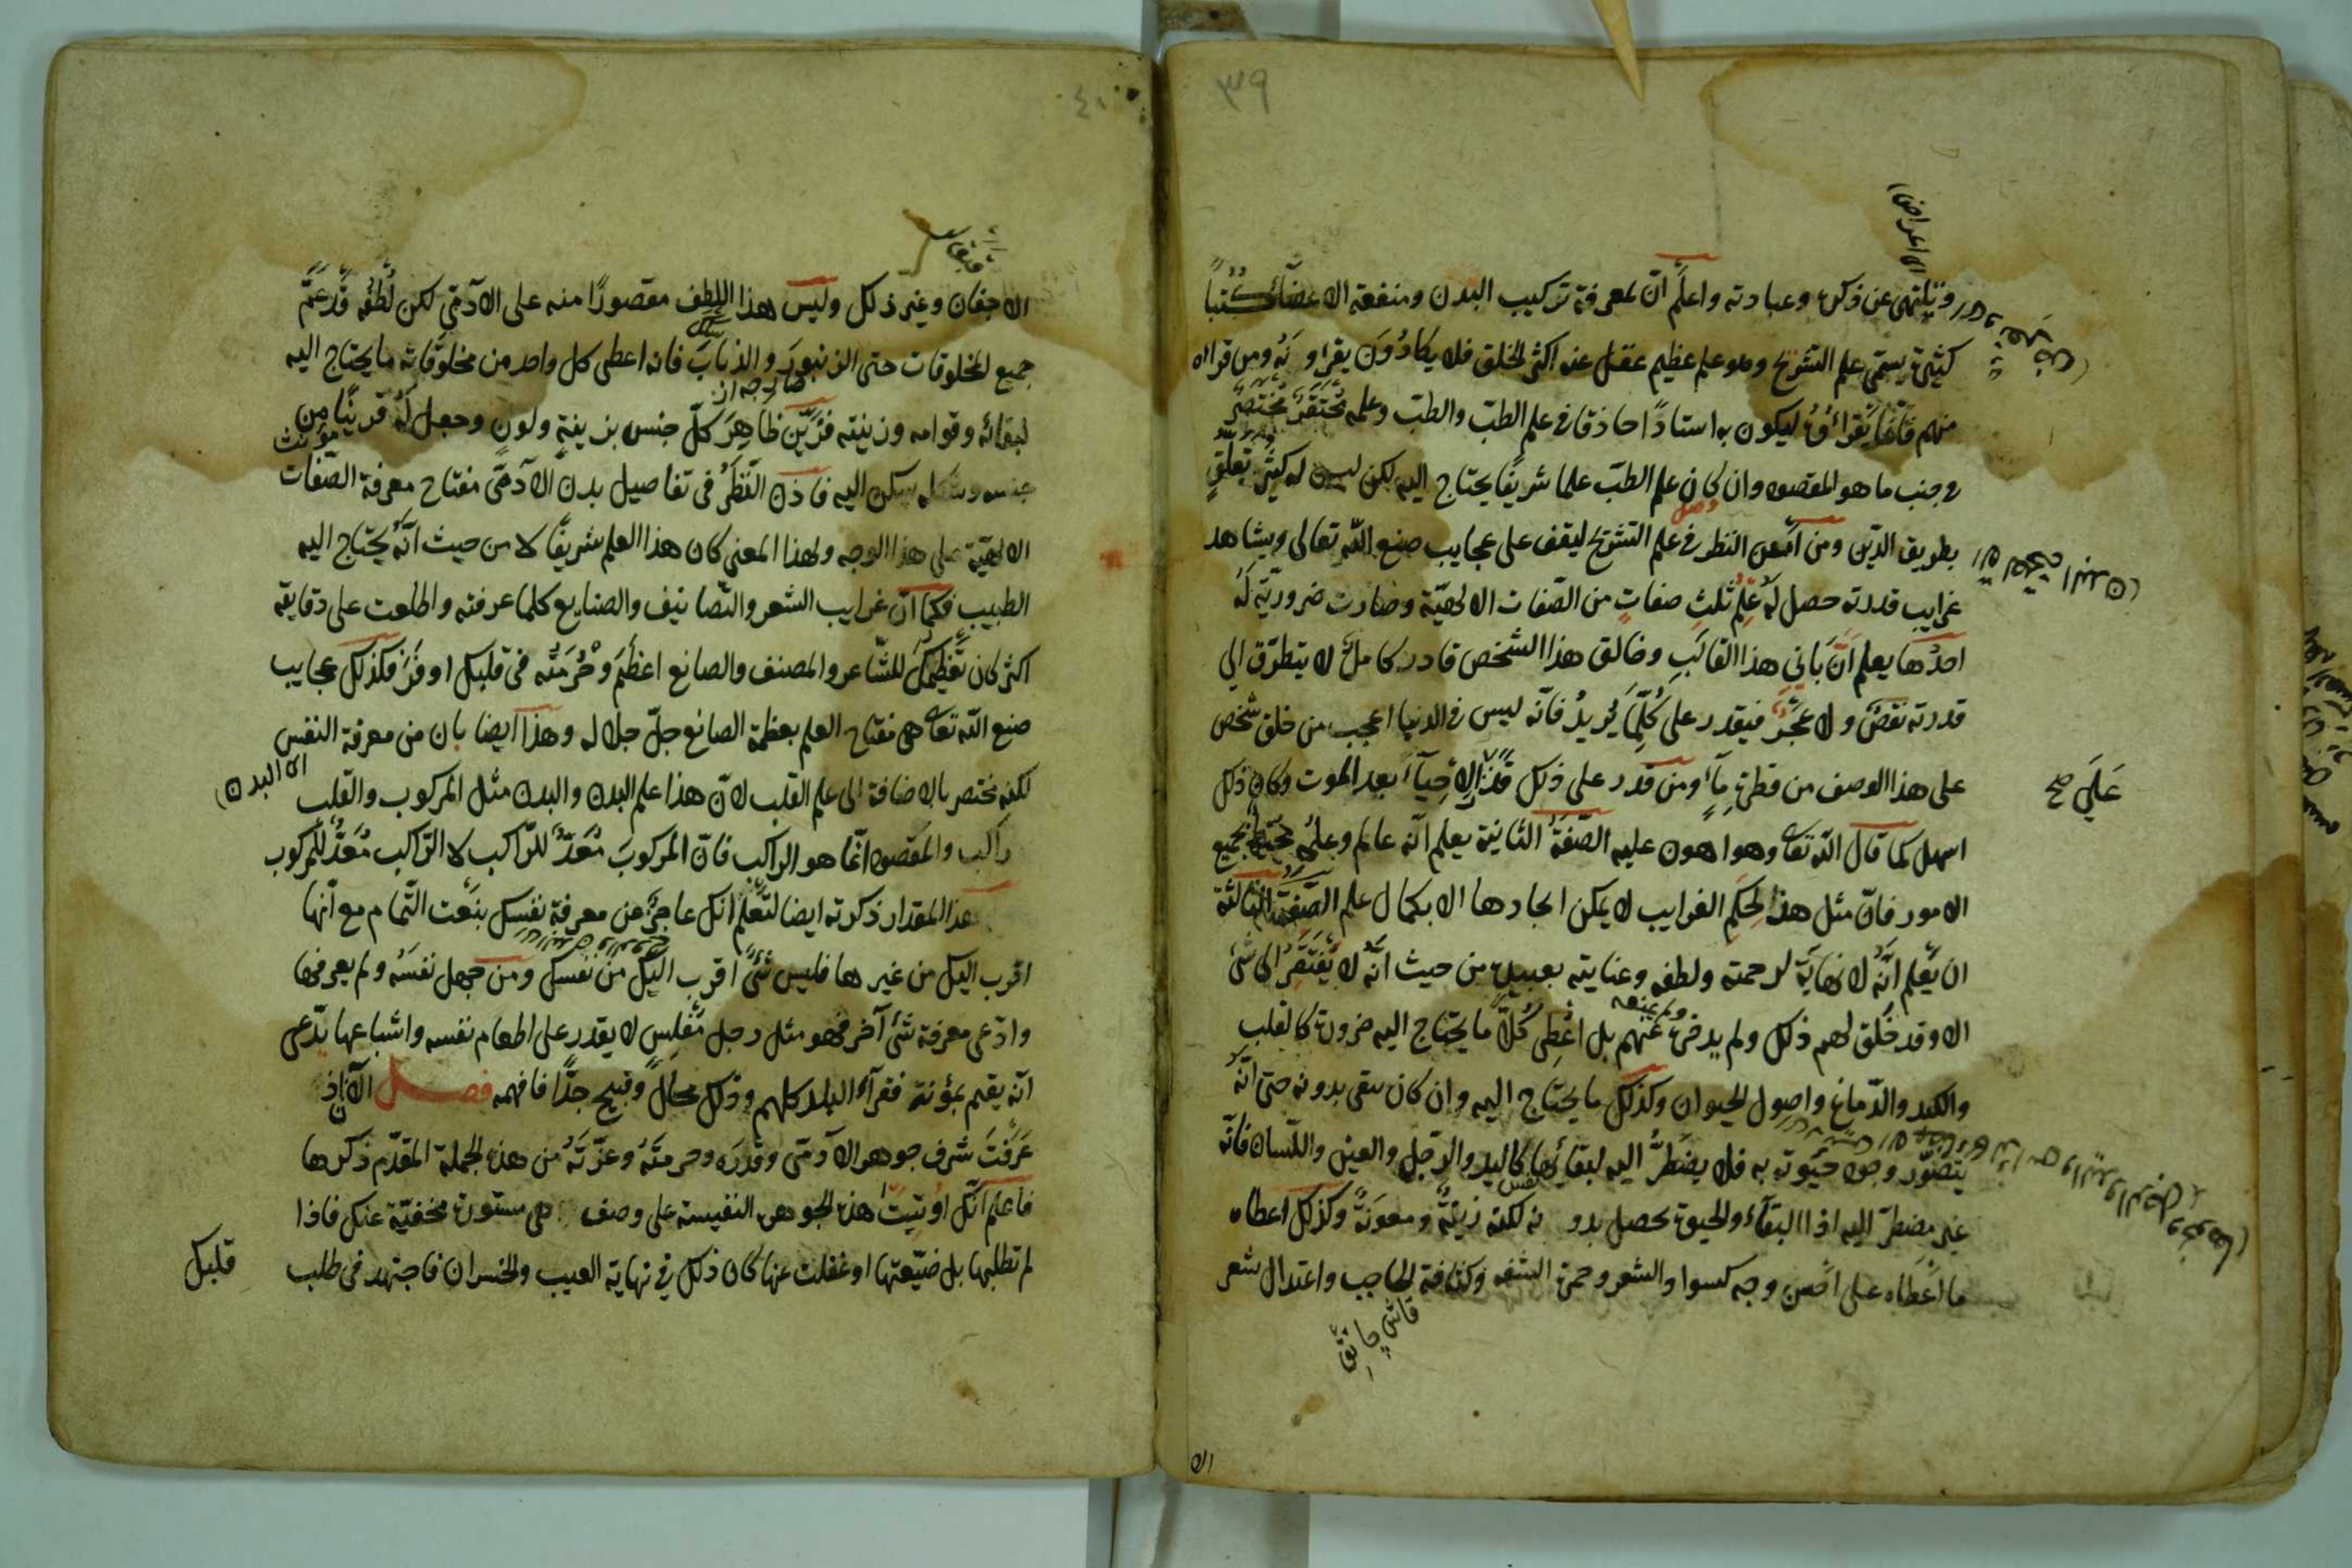 ٣٩
وتلتهى عن ذكره وعبادته واعلم انّ لمعرفة تركيب البدن ومنفعة الاعضاء كتباً
كثيرة يسمّى علم التشريح وهو علم عظيم غفل عنه اكثر الخلق فلا يكادون يقراونه ومن قراه
منهم فانّما يقرأوه ليكون به استاداً حاذقا في علم الطبّ والطبّ وعلمه محتقر مختصر
في جنب ما هو المقصود وان كان علم الطبّ علما شريفا يحتاج اليه لكن ليس له كثير تعلّق
بطريق الدين ومن امعن النظر في علم التشريح ليقف على عجايب صنع اللّه تعالى ويشاهد
غرايب قدرته حصل له علم ثلث صفات من الصّفات الالهيّة وصارت ضروريّة له
احدها يعلم انّ باني هذا القالب وخالق هذا الشخص قادر كامل لا يتطرّق الى
قدرته نقص ولا عجز فيقدر على كلّما يريد فانّه ليس في الدنيا اعجب من خلق شخص
على هذا الوصف من قطرة ماء ومن قدر على ذلك قدر الاحياء بعد الموت وكان ذلك
على صح
اسهل كما قال اللّه تعا وهو اهون عليه الصّفة الثانية يعلم انّه عالم وعلمه محيط بجميع
الامور فانّ مثل هذا الحكم الغرايب لا يمكن ايجادها الا بكمال علم الصّفة الثالثة
ان يعلم انّه لا نهاية لرحمته ولطفه وعنايته بعبيده من حيث انّه لا يفتقر الى شئ
الا وقد خلق لهم ذلك ولم يدخره عنهم بل اعطى كلّا ما يحتاج اليه ضرورة كالقلب
ولم يمنعه
والكبد والدّماغ واصول الحيوان وكذلك ما يحتاج اليه وان كان يبقى بدونه حتى انّه
يتصوّر وجود حيوته به فلا يضطرّ اليه لبقائها كاليد والرّجل والعين واللّسان فانّه
غير مضطرّ اليه اذا البقآء والحيوة يحصل بدونه لكنه زينة ومعونة وكذلك اعطاه
ما اعطاه على احسن وجه كسواد الشعر وحمرة الشفه وكثافة الحاجب واعتدال شعر
الا
٤٠
الاجفان وغير ذلك وليس هذا اللطف مقصورًا منه على الآدمي لكن لطفه قد عمّ
جميع المخلوقات حتى الزنبور والذباب فانه اعطى كل واحد من مخلوقاته ما يحتاج اليه
لبقائه وقوامه وزينته فزيّن ظاهر كلّ جنس بزينة ولون وجعل له قرينًا من
جنسه وشكله يسكن اليه فاذن النّظر في تفاصيل بدن الآدمّى مفتاح معرفة الصّفات
الالهيّة على هذا الوجه ولهذا المعنى كان هذا العلم شريفًا لا من حيث انّه يحتاج اليه
الطبيب فكما انّ غرايب الشعر والتّصانيف والصنايع كلما عرفته واطلعت على دقايقه
اكثر كان تعظيمك للشّاعر والمصنف والصانع اعظم وحرمته في قلبك اوفر فكذلك عجايب
صنع اللّه تعا هى مفتاح العلم بعظمة الصانع جلّ جلاله وهذا ايضا بان من معرفة النفس
لكنه مختصر بالاضافة الى علم القلب لانّ هذا علم البدن والبدن مثل المركوب والقلب
راكب والمقصود انّما هو الراكب فانّ المركوب معدّ للرّاكب لا الرّاكب معدّ للمركوب
هذا المقدار ذكرته ايضا لتعلم انك عاجز عن معرفة نفسك بنعت التّمام مع انّها
اقرب اليك من غيرها فليس شئ اقرب اليك من نفسك ومن جهل نفسه ولم يعرفها
وادّعى معرفة شئ آخر فهو مثل رجل مفلس لا يقدر على اطعام نفسه واشباعها يدّعى
انّه يقيم بمؤنة فقرآء البلد كلهم وذلك محال وقبيح جدًّا فافهمه فصل الآن اذ
عرفت شرف جوهر الآدمّى وقدره وحرمته وعزّته من هذه الجملة المقدّم ذكرها
فاعلم انّك اوتيت هذه الجوهرة النفيسة على وصف هى مستورة مخفيّة عنك فاذا
لم تطلبها بل ضيّعتها او غفلت عنها كان ذلك في نهاية العيب والخسران فاجتهد في طلب
قلبك